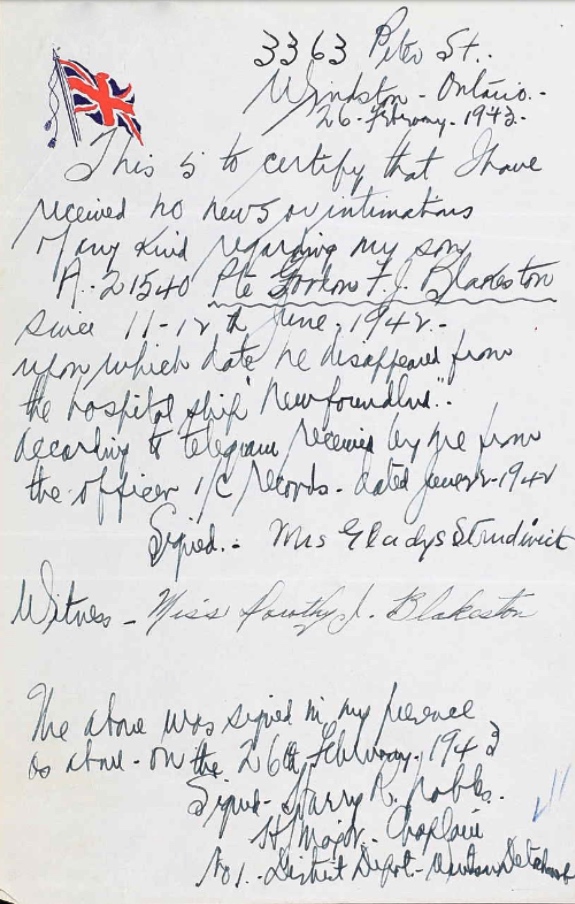 3363 Peter St..
Windsor - Ontario.-
26-February-1943-
This is to certify that I have
received no news or intimations
of any kind regarding my son
A.-21540 Pte Gordon F. J. Blakeston
since 11-12th June-1942.-
upon which date he disappeared from
the hospital ship "Newfoundland".-
according to telegram received by me from
the officer i/c records - dated June 22-1942
Signed.- Mrs Gladys Strudwick
Witness - Miss Dorothy J. Blakeston
The above was signed in my presence
as above - on the 26th February, 1943
Signed - Harry R.
H/Major. Chaplain
No 1.- District Depot.- Windsor Detachment